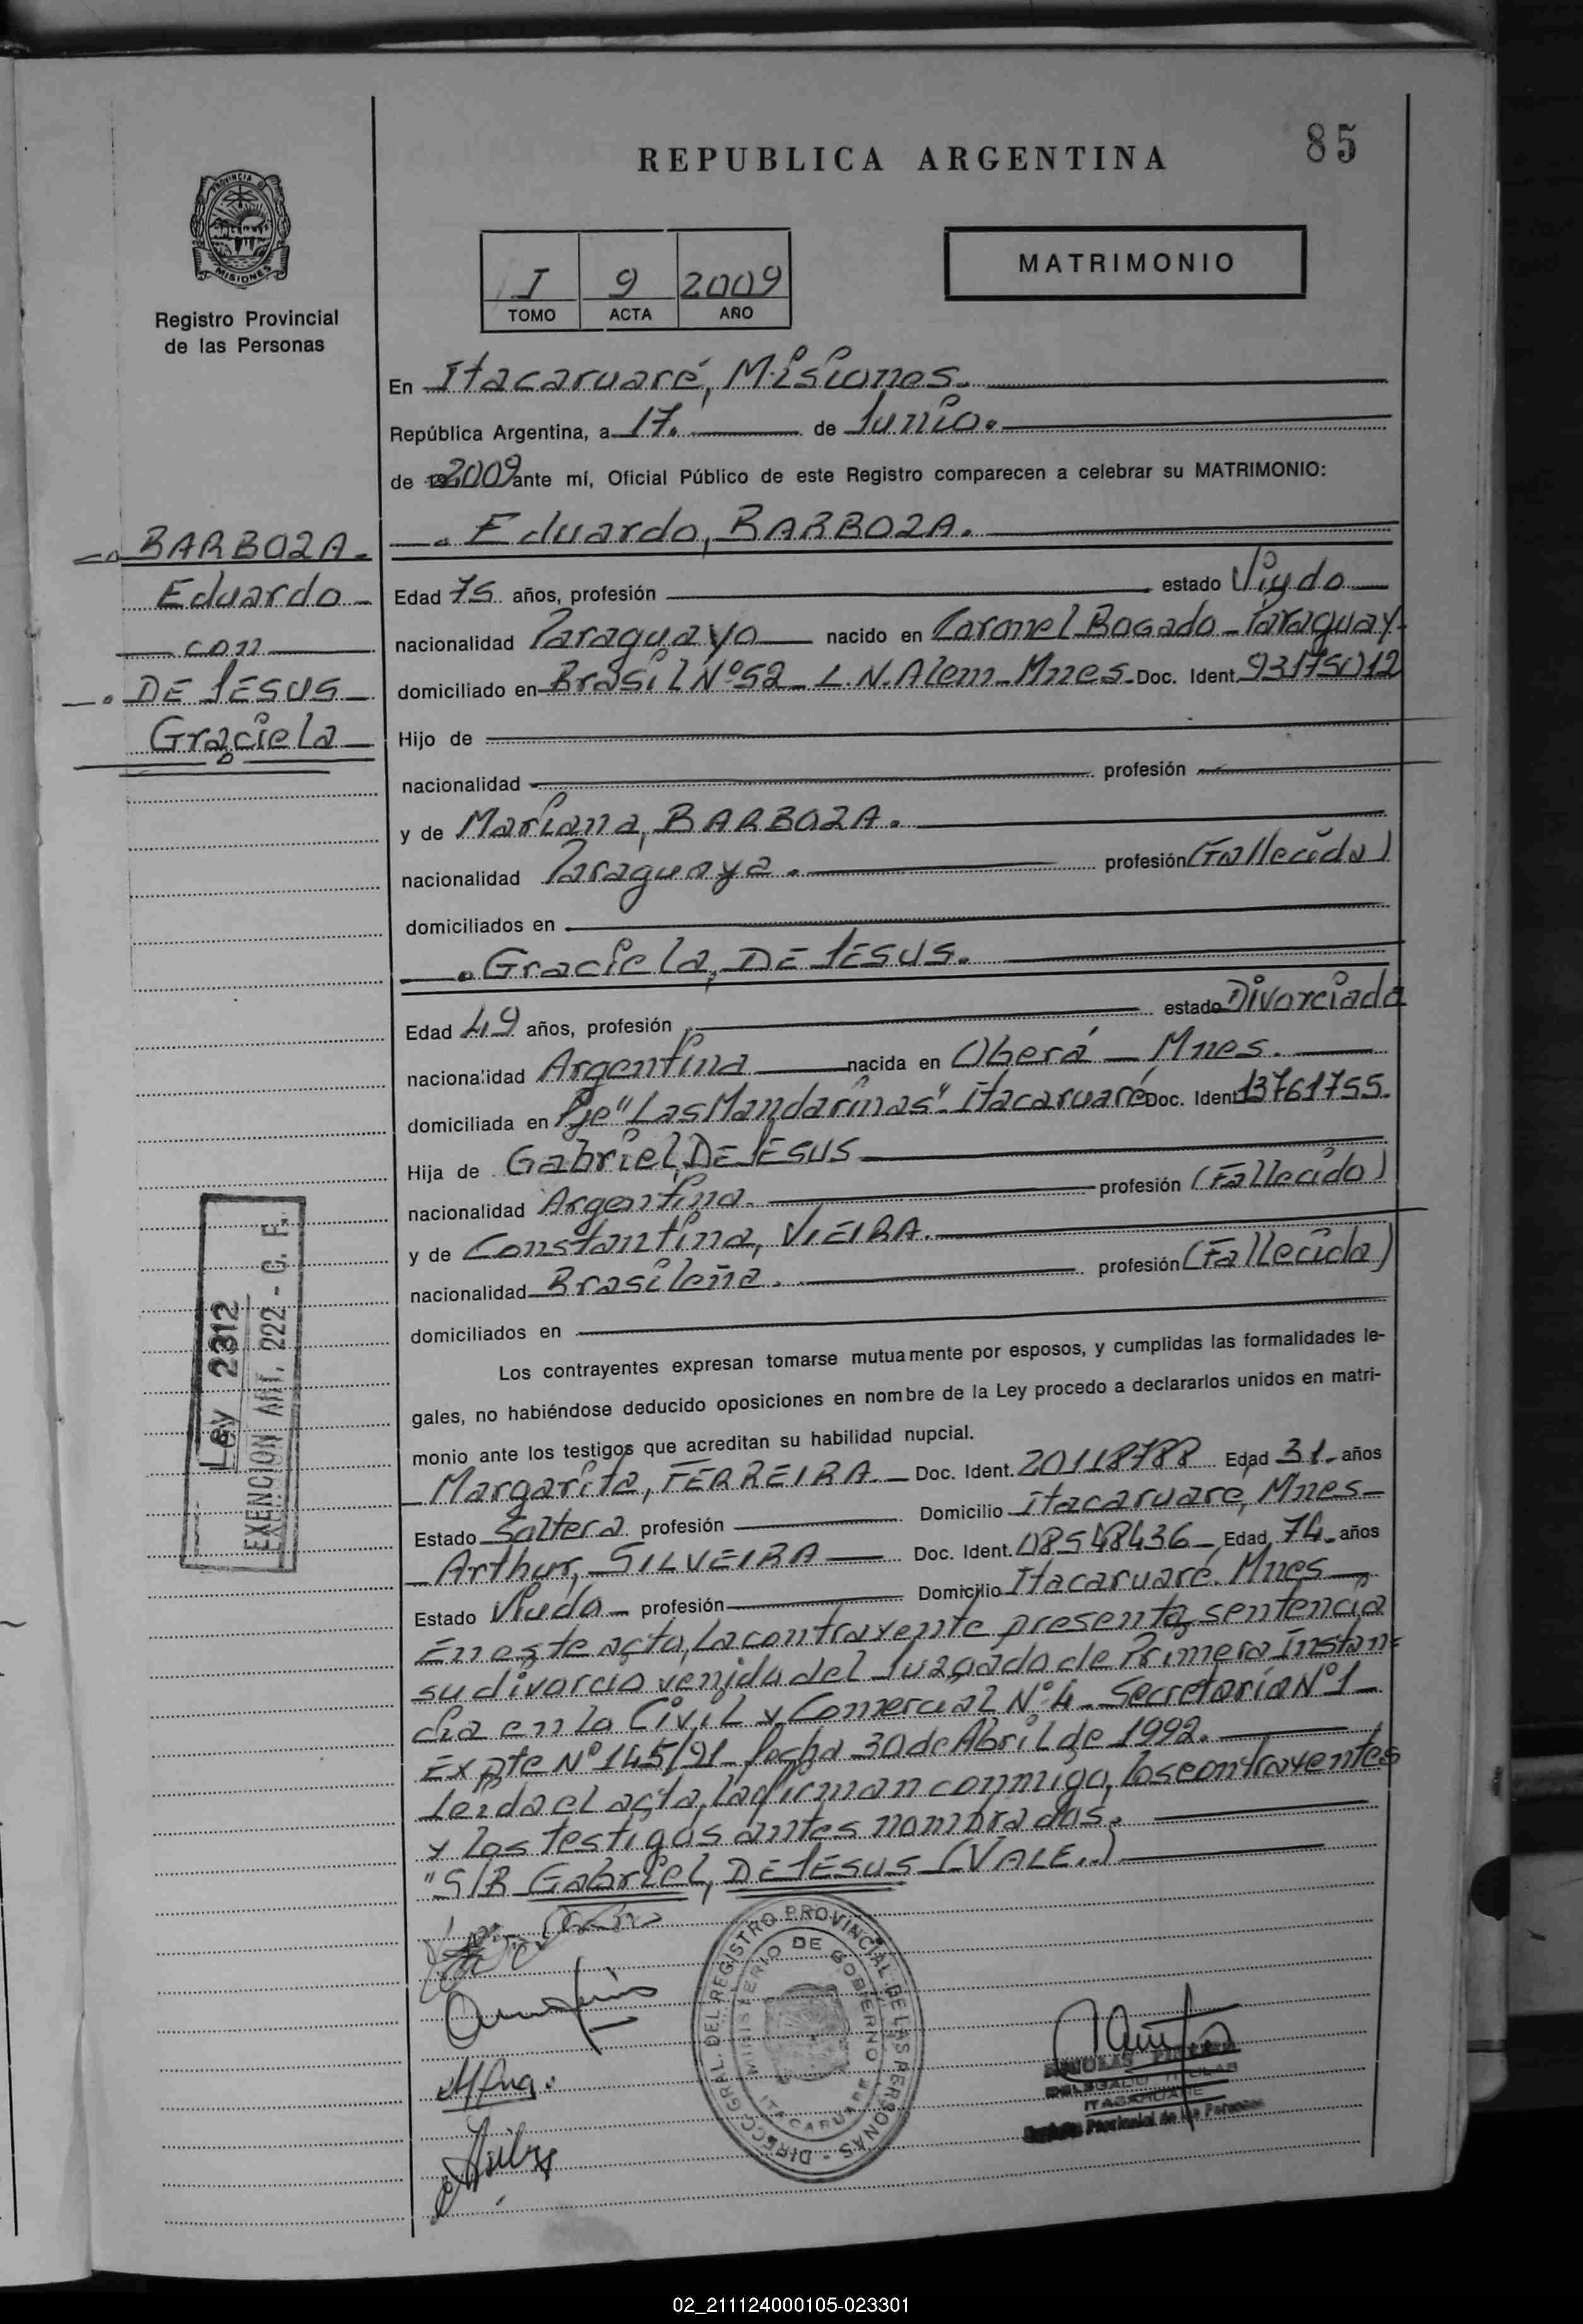 85
REPUBLICA ARGENTINA
PROVINCIA D
MISIONES
Registro Provincial
de las Personas
I 9 2009
TOMO ACTA AÑO
MATRIMONIO
En Itacaruaré, Misiones.
República Argentina, a 17. de Junio.
de 2009 ante mí, Oficial Público de este Registro comparecen a celebrar su MATRIMONIO:
BARBOZA
Eduardo
con
DE JESUS
Graciela
Eduardo, BARBOZA.
Edad 75 años, profesión estado Viudo
nacionalidad Paraguayo nacido en Coronel Bogado - Paraguay-
domiciliado en Brasil Nº 52 - L.N. Alem - Mnes. Doc. Ident. 93175012
Hijo de
nacionalidad profesión
y de Mariana, BARBOZA.
nacionalidad Paraguaya. profesión (Fallecida)
domiciliados en
Graciela, DE JESUS.
Edad 49 años, profesión estado Divorciada
nacionalidad Argentina nacida en Oberá - Mnes.
domiciliada en Pje "Las Mandarinas" - Itacaruaré Doc. Ident 13761755.
Hija de Gabriel, DE JESUS
nacionalidad Argentina. profesión (Fallecido)
y de Constantina, VIEIRA.
nacionalidad Brasileña. profesión (Fallecida)
domiciliados en
Los contrayentes expresan tomarse mutuamente por esposos, y cumplidas las formalidades le-
gales, no habiéndose deducido oposiciones en nombre de la Ley procedo a declararlos unidos en matri-
monio ante los testigos que acreditan su habilidad nupcial.
Margarita, FERREIRA. Doc. Ident. 20118788 Edad 31 años
Estado Soltera profesión Domicilio Itacaruaré, Mnes-
Arthur, SILVEIRA Doc. Ident. 08548436 Edad 74 años
Estado Viudo profesión Domicilio Itacaruaré. Mnes
En este acto, la contrayente presenta sentencia
su divorcio venido del Juzgado de Primera Instan-
cia en lo Civil y Comercial Nº 4 - Secretaría Nº 1
Expte Nº 145/91 - fecha 30 de Abril de 1992.
leída el acta, la firman conmigo, los contrayentes
y los testigos antes nombrados.
"S/R Gabriel, DE JESUS (VALE..)
Ley 2312
EXENCION ART. 222 - C. F.
DIRECC. GRAL. DEL REGISTRO PROVINCIAL DE LAS PERSONAS
MINISTERIO DE GOBIERNO
ITACARUARE
DELEGADO TITULAR
ITACARUARE
Registro Provincial de las Personas
02_211124000105-023301